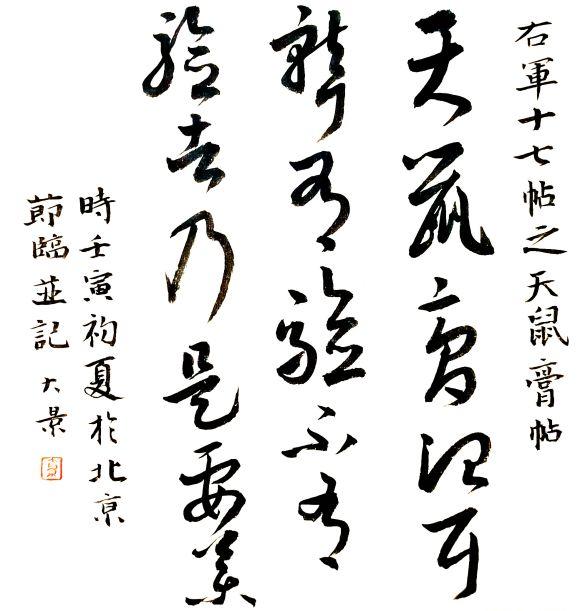 右軍十七帖之天鼠膏帖
天鼠膏治耳
聾有驗不有
驗者乃是要藥
時壬寅初夏於北京
節臨並記 大景